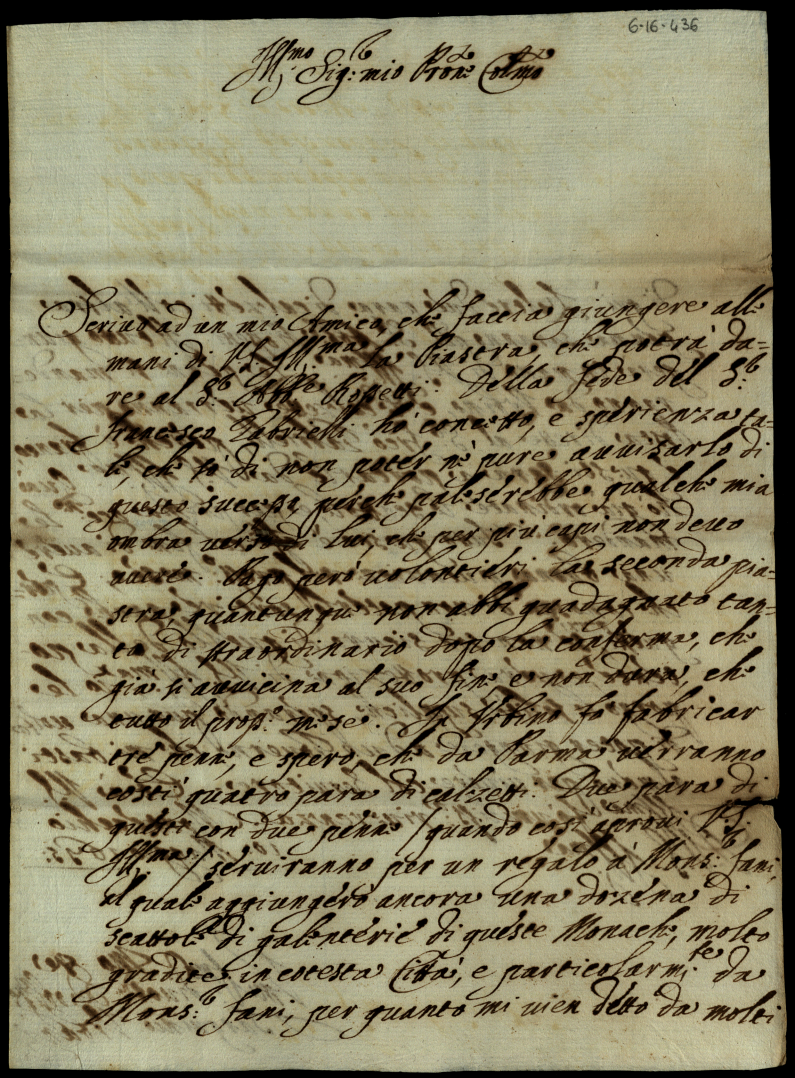 6-16-436
Ill:mo Sig:r mio Pron:e Colmo
Scrivo ad un mio Amico, che faccia giungere alle
mani di V.S. Ill:ma la Piastra, che potrà da=
re al S:r Abb:e Rossetti. Della fede del S:r
Francesco Gabrielli hò concetto, e sperienza ta=
le, che sò di non potér nè pure avvisarlo di
questo successo, perche paleserebbe qualche mia
ombra verso di lui, che per più capi non devo
avere. Pago però volontieri la seconda pia=
stra, quantunque non abbi guadagnato tan=
to di straordinario dopo la conferma, che
già si avvicina al suo fine e non dura, che
tutto il pros:o mese. In Urbino fò fabricar
trè penne, e spero, che da Parma verranno
costi quatro para di calzetti. Due para di
questi con due penne / quando così aprovi V.S.
Ill:ma / serviranno per un regalo à Mons:r Fani,
al quale aggiungerò ancora una dozena di
scattole di galenterie di queste Monache, molto
gradite in cotesta Città, e particolarm:te da
Mons:r Fani, per quanto mi vien detto da molti